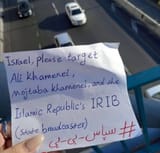 Israel, please target
Ali Khamenei,
Mojtaba Khamenei, and the
Islamic Republic's IRIB
(State broadcaster)
#سپاس_بی_بی